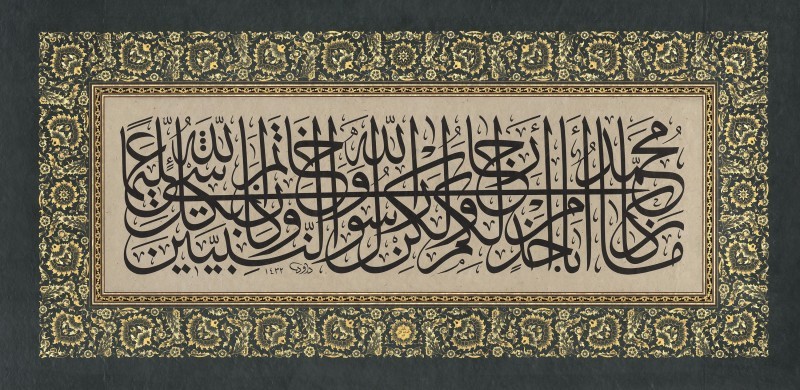 مَا كَانَ مُحَمَّدٌ أَبَا أَحَدٍ مِنْ رِجَالِكُمْ وَلَكِنْ رَسُولَ اللّٰهِ وَخَاتَمَ النَّبِيِّينَ وَكَانَ اللّٰهُ بِكُلِّ شَيْءٍ عَلِيمًا
داود ١٤٣٢